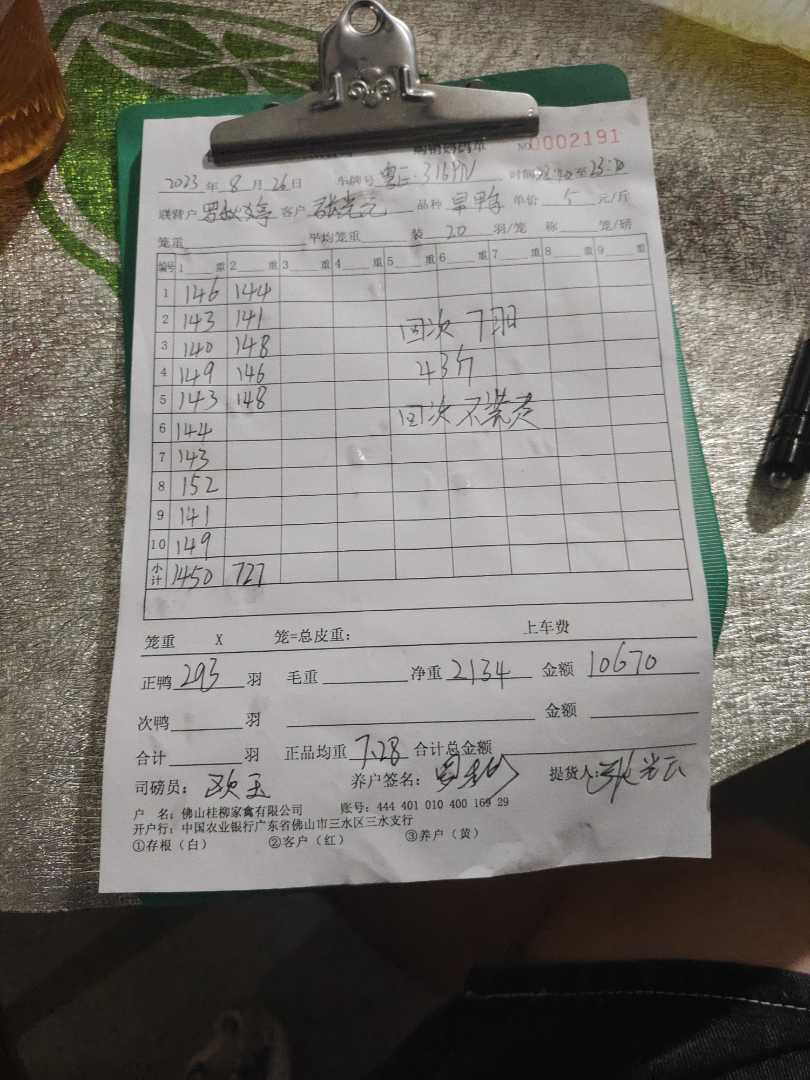 NO 0002191
2023 年 8 月 26 日 车牌号 粤E·316YN 时间 至 23:20
联营户 客户 张光元 品种 旱鸭 单价 5 元/斤
笼重 平均笼重 装 20 羽/笼 称 笼/磅
编号 1 重 2 重 3 重 4 重 5 重 6 重 7 重 8 重 9 重
1 146 144
2 143 141 回次 7羽
3 140 148
4 149 146 43斤
5 143 148 回次不装
6 144
7 143
8 152
9 141
10 149
小计 1450 727
笼重 X 笼=总皮重: 上车费
正鸭 293 羽 毛重 净重 2134 金额 10670
次鸭 羽 金额
合计 羽 正品均重 7.28 合计总金额
司磅员: 养户签名: 提货人:
户 名: 佛山桂柳家禽有限公司 账号: 444 401 010 400 169 29
开户行: 中国农业银行广东省佛山市三水区三水支行
①存根(白) ②客户(红) ③养户(黄)